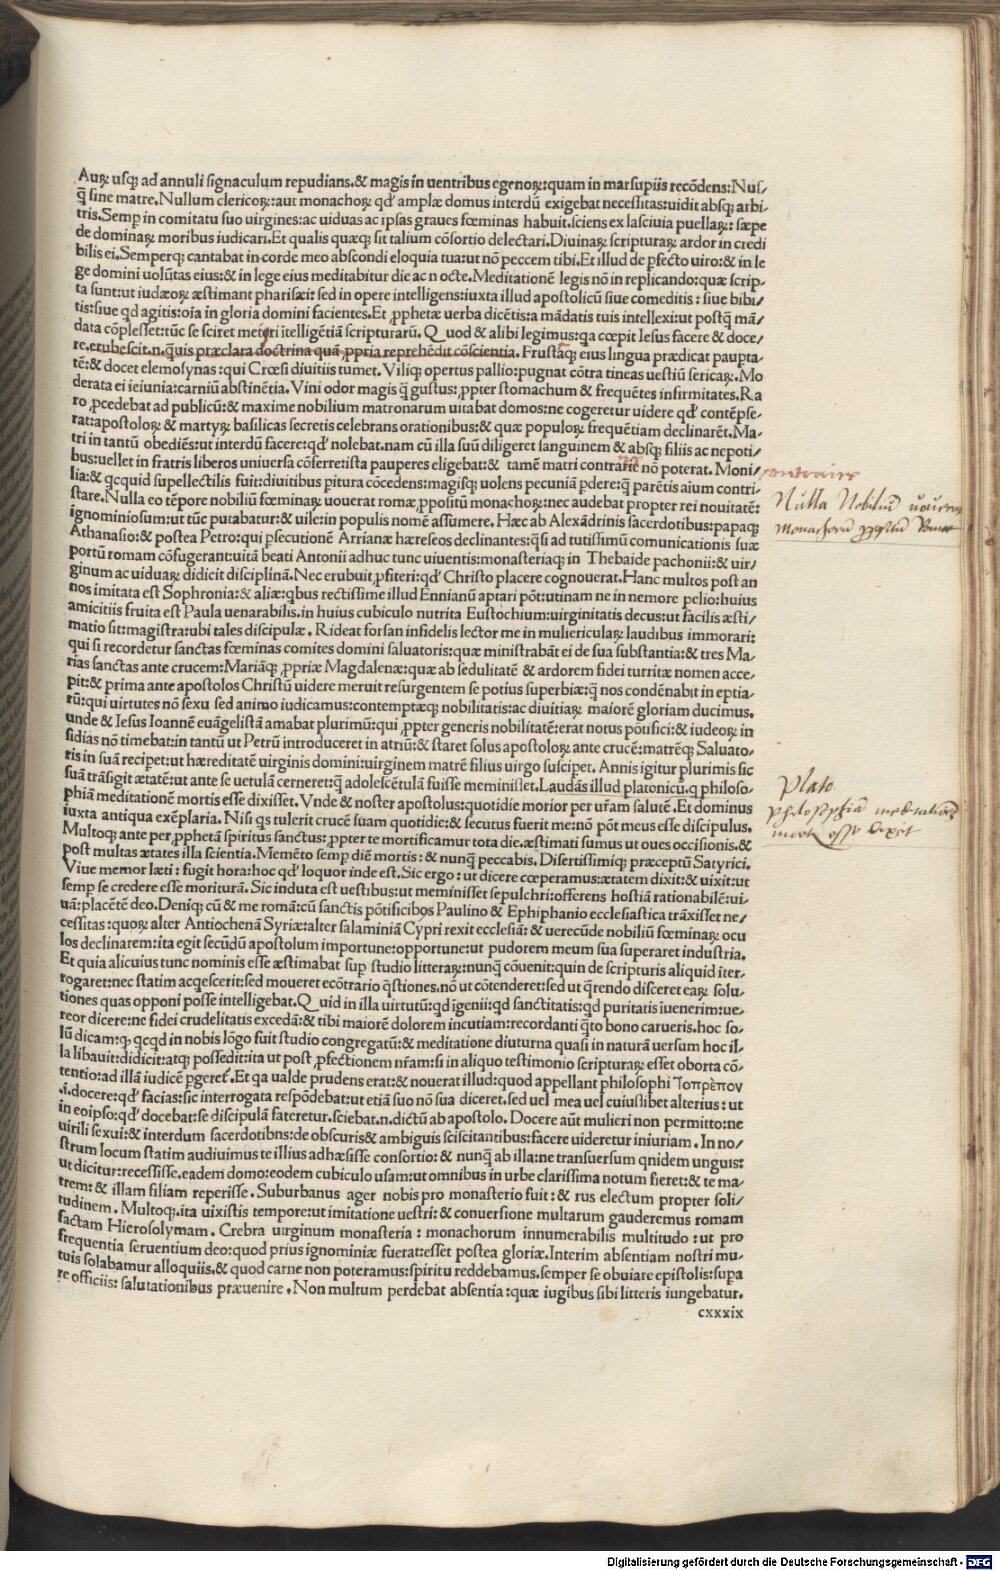 Auꝝ uſqꝫ ad annuli ſignaculum repudians.& magis in uentribus egenoꝝ:quam in marſupiis recõdens:Nuſ-
q̃ ſine matre.Nullum clericoꝝ:aut monachoꝝ qd' amplæ domus interdũ exigebat neceſſitas:uidit abſqꝫ arbi-
tris.Semꝑ in comitatu ſuo uirgines:ac uiduas ac ipſas graues fœminas habuit.ſciens ex laſciuia puellaꝝ: ſæpe
de dominaꝝ moribus iudicari.Et qualis quæqꝫ ſit talium cõſortio delectari.Diuinaꝝ ſcripturaꝝ ardor in credi
bilis ei.Semperqꝫ cantabat in corde meo abſcondi eloquia tua:ut nõ peccem tibi.Et illud de ꝑfecto uiro:& in le
ge domini uolũtas eius:& in lege eius meditabitur die ac n octe.Meditationẽ legis nõ in replicando:quæ ſcrip-
ta ſunt:ut iudæoꝝ æſtimant phariſæi: ſed in opere intelligens:iuxta illud apoſtolicũ ſiue comeditis: ſiue bibi/
tis:ſiue qd agitis:oĩa in gloria domini facientes.Et ꝓphetæ uerba dicẽtis:a mãdatis tuis intellexi:ut poſtq̃ mã/
data cõpleſſet:tũc ſe ſciret meri ĩtelligẽtiã ſcripturarũ. Quod & alibi legimus:qa cœpit Ieſus facere & doce/
re.erubeſcit.n.quis præclara doctrina quã ꝓpria reprehẽdit cõſcientia. Fruſtaqꝫ eius lingua prædicat paupta-
tẽ:& docet elemoſynas:qui Crœſi diuitiis tumet. Viliqꝫ opertus pallio:pugnat cõtra tineas ueſtiũ ſericaꝝ.Mo
derata ei ieiunia:carniũ abſtinẽtia. Vini odor magis q̃ guſtus: ꝓpter ſtomachum & frequẽtes infirmitates.Ra
ro ꝓcedebat ad publicũ:& maxime nobilium matronarum uitabat domos:ne cogeretur uidere qd' contẽpſe-
rat:apoſtoloꝝ & martyꝝ baſilicas ſecretis celebrans orationibus:& quæ populoꝝ frequẽtiam declinarẽt.Ma-
tri in tantũ obediẽs:ut interdũ facere:qd' nolebat.nam cũ illa ſuũ diligeret ſanguinem & abſqꝫ filiis ac nepoti/
bus:uellet in fratris liberos uniuerſa cõferre:iſta pauperes eligebat:& tamẽ matri contrarie nõ poterat. Moni/
contraire
lia:& qcquid ſupellectilis fuit:diuitibus ꝑitura cõcedens:magiſqꝫ uolens pecuniã ꝑdere:q̃ parẽtis aium contri-
ſtare. Nulla eo tẽpore nobiliũ fœminaꝝ uouerat romæ ꝓpoſitũ monachoꝝ:nec audebat propter rei nouitatẽ:
Nulla Nobiliũ
ignominioſum:ut tũc putabatur:& uile:in populis nomẽ aſſumere. Hæc ab Alexãdrinis ſacerdotibus:papaqꝫ
Athanaſio:& poſtea Petro:qui ꝑſecutionẽ Arrianæ hæreſeos declinantes:q̃ſi ad tutiſſimũ comunicationis ſuæ
portũ romam cõfugerant:uitã beati Antonii adhuc tunc uiuentis:monaſteriaqꝫ in Thebaide pachonii:& uir/
ginum ac uiduaꝝ didicit diſciplinã.Nec erubuit ꝓfiteri:qd' Chriſto placere cognouerat.Hanc multos poſt an
nos imitata eſt Sophronia:& aliæ:qbus rectiſſime illud Ennianũ aptari põt:utinam ne in nemore pelio:huius
amicitiis fruita eſt Paula uenarabilis.in huius cubiculo nutrita Euſtochium:uirginitatis decus:ut facilis æſti/
matio ſit:magiſtra:ubi tales diſcipulæ. Rideat forſan infidelis lector me in muliericulaꝝ laudibus immorari:
qui ſi recordetur ſanctas fœminas comites domini ſaluatoris:quæ miniſtrabãt ei de ſua ſubſtantia:& tres Ma-
rias ſanctas ante crucem:Mariãqꝫ ꝓpriæ Magdalenæ:quæ ab ſedulitatẽ & ardorem fidei turritæ nomen acce-
pit:& prima ante apoſtolos Chriſtũ uidere meruit reſurgentem ſe potius ſuperbiæ:q̃ nos condẽnabit in eptia/
rũ:qui uirtutes nõ ſexu ſed animo iudicamus:contemptæqꝫ nobilitatis:ac diuitiaꝝ maiorẽ gloriam ducimus.
unde & Ieſus Ioannẽ euãgeliſtã amabat plurimũ:qui ꝓpter generis nobilitatẽ:erat notus põtifici:& iudeoꝝ in
ſidias nõ timebat:in tantũ ut Petrũ introduceret in atriũ:& ſtaret ſolus apoſtoloꝝ ante crucẽ:matrẽqꝫ Saluato-
ris in ſuã recipet:ut hæreditatẽ uirginis domini:uirginem matrẽ filius uirgo ſuſcipet. Annis igitur plurimis ſic
ſuã trãſigit ætatẽ:ut ante ſe uetulã cerneret:q̃ adoleſcẽtulã fuiſſe meminiſſet.Laudãs illud platonicũ.q philoſo-
Plato
phiã meditationẽ mortis eſſe dixiſſet. Vnde & noſter apoſtolus:quotidie morior per uram ſalutẽ.Et dominus
philoſophia meditationẽ
iuxta antiqua exẽplaria. Niſi qs tulerit crucẽ ſuam quotidie:& ſecutus fuerit me:nõ põt meus eſſe diſcipulus.
Multoqꝫ ante per ꝓphetã ſpiritus ſanctus: ꝓpter te mortificamur tota die.æſtimati ſumus ut oues occiſionis.&
poſt multas ætates illa ſcientia. Memẽto ſemꝑ diẽ mortis: & nunq̃ peccabis. Diſertiſſimiqꝫ præceptũ Satyrici.
Viue memor læti: fugit hora:hoc qd' loquor inde eſt.Sic ergo: ut dicere cœperamus:ætatem dixit:& uixit:ut
ſemꝑ ſe credere eſſe moriturã. Sic induta eſt ueſtibus:ut meminiſſet ſepulchri:offerens hoſtiã rationabilẽ:ui-
uã:placẽtẽ deo.Deniqꝫ cũ & me romã:cũ ſanctis põtificibos Paulino & Ephiphanio eccleſiaſtica trãxiſſet ne/
ceſſitas:quoꝝ alter Antiochenã Syriæ:alter ſalaminiã Cypri rexit eccleſiã: & uerecũde nobiliũ fœminaꝝ ocu
los declinarem:ita egit ſecũdũ apoſtolum importune:opportune:ut pudorem meum ſua ſuperaret induſtria.
Et quia alicuius tunc nominis eſſe æſtimabat ſuꝑ ſtudio litteraꝝ:nunq̃ cõuenit:quin de ſcripturis aliquid iter-
rogaret:nec ſtatim acqeſcerit:ſed moueret ecõtrario q̃ſtiones.nõ ut cõtenderet:ſed ut q̃rendo diſceret eaꝝ ſolu/
tiones quas opponi poſſe intelligebat.Quid in illa uirtutũ:qd igenii:qd ſanctitatis:qd puritatis ĩuenerim:ue/
reor dicere:ne fidei crudelitatis excedã:& tibi maiorẽ dolorem incutiam:recordanti q̃to bono carueris.hoc ſo-
lũ dicam:ꝙ qcqd in nobis lõgo fuit ſtudio congregatũ:& meditatione diuturna quaſi in naturã uerſum hoc il-
la libauit:didicit:atqꝫ poſſedit:ita ut poſt ꝓfectionem nram:ſi in aliquo teſtimonio ſcripturaꝝ eſſet oborta cõ-
tentio:ad illã iudicẽ ꝑgeret.Et qa ualde prudens erat:& nouerat illud:quod appellant philoſophi Τοπρὲπον
.i.docere:qd' facias:ſic interrogata reſpõdebat:ut etiã ſuo nõ ſua diceret.ſed uel mea uel cuiuſlibet alterius: ut
in eoipſo:qd' docebat:ſe diſcipulã fateretur.ſciebat.n.dictũ ab apoſtolo. Docere aũt mulieri non permitto:ne
uirili ſexui:& interdum ſacerdotibns:de obſcuris& ambiguis ſciſcitantibus:facere uideretur iniuriam. In no/
ſtrum locum ſtatim audiuimus te illius adhæſiſſe conſortio:& nunq̃ ab illa:ne tranſuerſum qnidem unguis:
ut dicitur:receſſiſſe.eadem domo:eodem cubiculo uſam:ut omnibus in urbe clariſſima notum fieret:& te ma-
trem:& illam filiam reperiſſe. Suburbanus ager nobis pro monaſterio fuit:& rus electum propter ſoli/
tudinem. Multoqꝫ.ita uixiſtis tempore:ut imitatione ueſtri:& conuerſione multarum gauderemus romam
factam Hieroſolymam. Crebra uirginum monaſteria: monachorum innumerabilis multitudo:ut pro
frequentia ſeruentium deo:quod prius ignominiæ fuerat:eſſet poſtea gloriæ.Interim abſentiam noſtri mu-
tuis ſolabamur alloquiis.& quod carne non poteramus:ſpiritu reddebamus.ſemper ſe obuiare epiſtolis:ſupa
re officiis: ſalutationibus præuenire. Non multum perdebat abſentia:quæ iugibus ſibi litteris iungebatur.
cxxxix
Digitalisierung gefördert durch die Deutsche Forschungsgemeinschaft - DFG